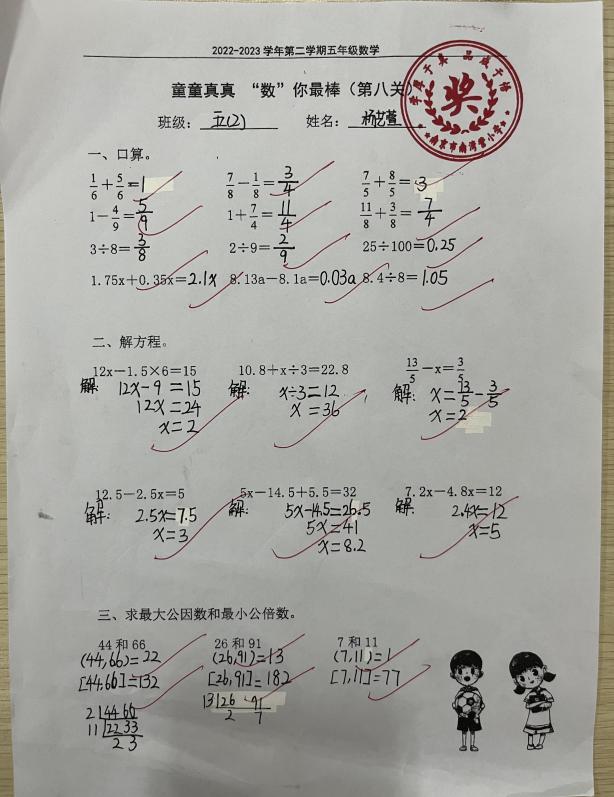 2022-2023学年第二学期五年级数学
童童真真 “数”你最棒（第八关）
班级： 五(2) 姓名： 杨艺萱
奖
南京市南湾营小学
一、口算。
1/6+5/6=1 7/8-1/8=3/4 7/5+8/5=3
1-4/9=5/9 1+7/4=11/4 11/8+3/8=7/4
3÷8=3/8 2÷9=2/9 25÷100=0.25
1.75x+0.35x=2.1x 8.13a-8.1a=0.03a 8.4÷8=1.05
二、解方程。
12x-1.5×6=15 10.8+x÷3=22.8 13/5-x=3/5
解: 12x-9=15 解: x÷3=12 解: x=13/5-3/5
12x=24 x=36 x=2
x=2
12.5-2.5x=5 5x-14.5+5.5=32 7.2x-4.8x=12
解: 2.5x=7.5 解: 5x-14.5=26.5 解: 2.4x=12
x=3 5x=41 x=5
x=8.2
三、求最大公因数和最小公倍数。
44和66 26和91 7和11
(44,66)=22 (26,91)=13 (7,11)=1
[44,66]=132 [26,91]=182 [7,11]=77
2 44 66 13 26 91
11 22 33 2 7
2 3